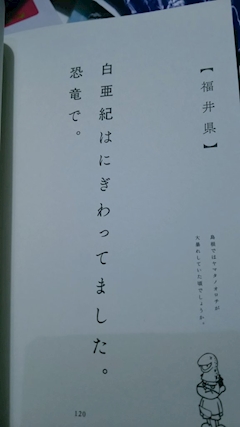 【福井県】
白亜紀はにぎわってました。
恐竜で。
島根ではヤマタノオロチが
大暴れしていた頃でしょうか。
120